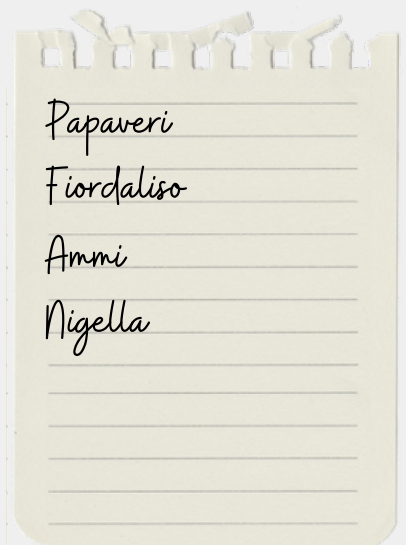 Papaveri
Fiordaliso
Ammi
Nigella